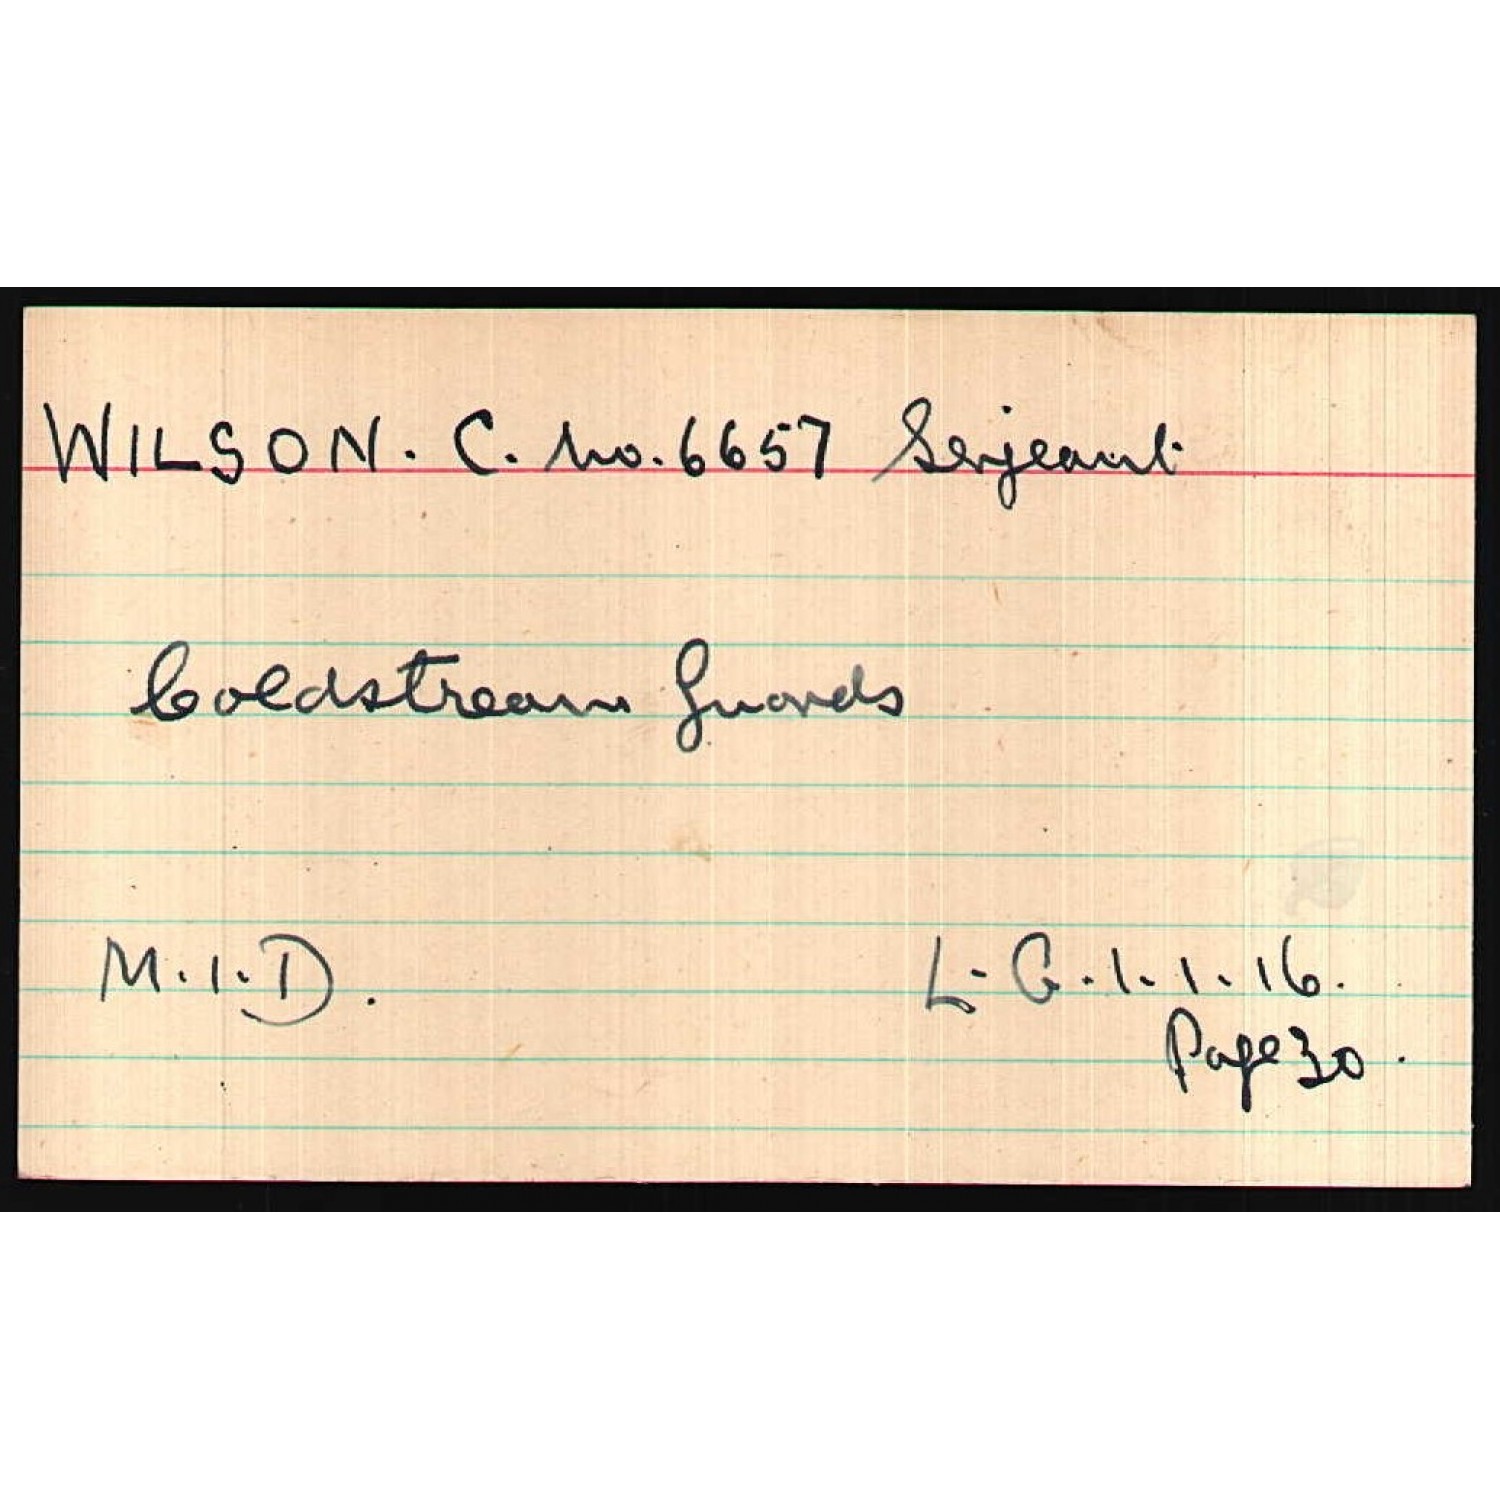 WILSON. C. No. 6657 Serjeant.
Coldstream Guards
M.I.D. L.G. 1.1.16.
Page 30.